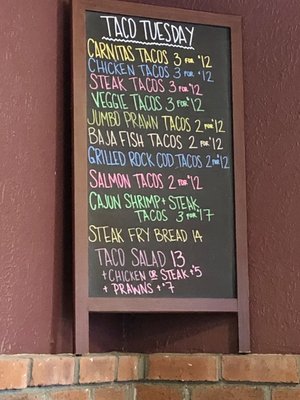 TACO TUESDAY
CARNITAS TACOS 3 FOR $12
CHICKEN TACOS 3 FOR $12
STEAK TACOS 3 FOR $12
VEGGIE TACOS 3 FOR $12
JUMBO PRAWN TACOS 2 FOR $12
BAJA FISH TACOS 2 FOR $12
GRILLED ROCK COD TACOS 2 FOR $12
SALMON TACOS 2 FOR $12
CAJUN SHRIMP + STEAK
TACOS 3 FOR $17
STEAK FRY BREAD 14
TACO SALAD 13
+ CHICKEN OR STEAK + $5
+ PRAWNS + $7